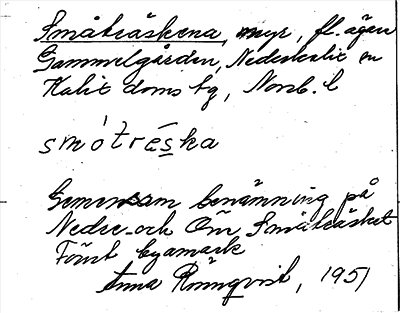 Småträskena, myr, fl. ägare
Gammelgården, Nederkalix sn
Kalix doms tg, Norrb. l
smótréska
Gemensam benämning på
Neder- och Över Småträsket
Först byamark
Anna Rönnqvist, 1951